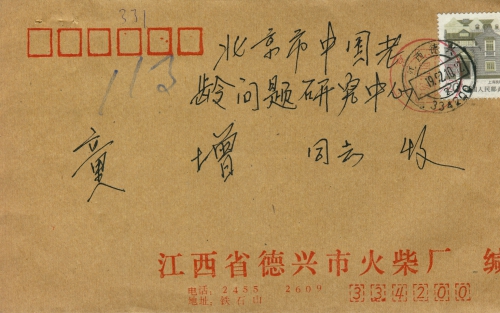 331
113
北京市中国老
龄问题研究中心
黄增同志收
江西省德兴市火柴厂 缄
电话：2455 2609
地址：铁石山 334200